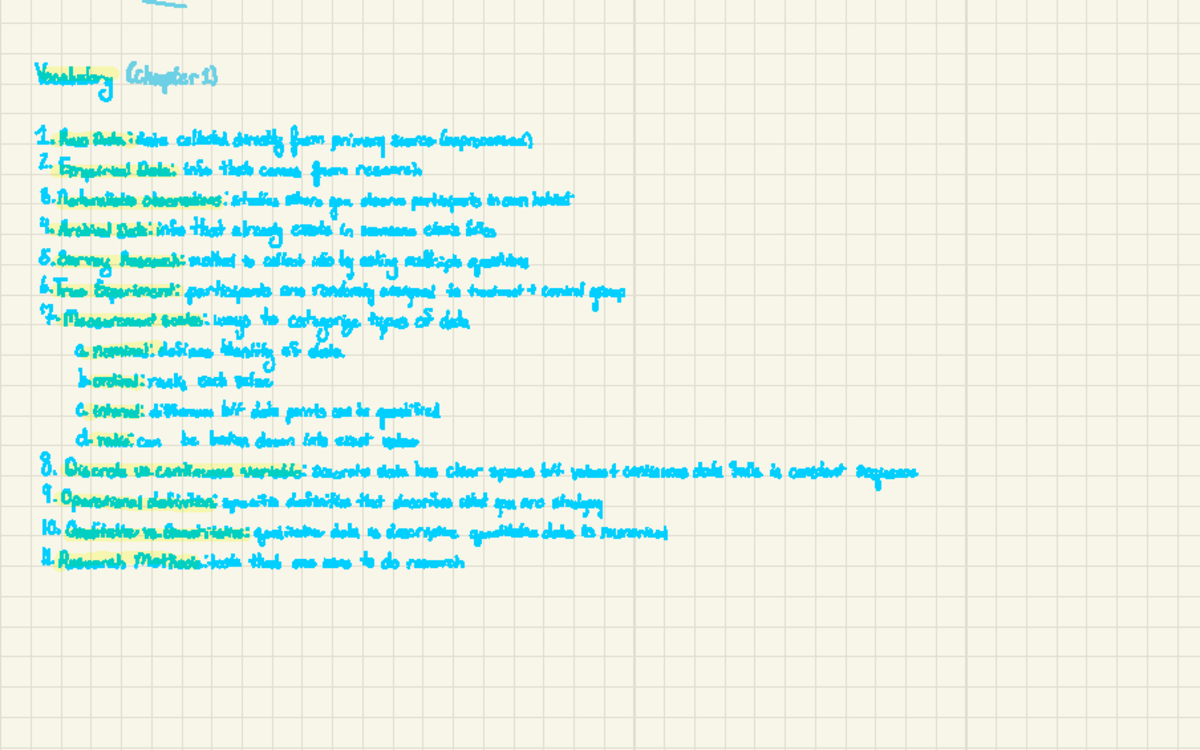 Vocabulary (Chapter 1)
1. Raw Data: data collected directly from primary source (unprocessed)
2. Empirical Data: info that comes from research
3. Naturalistic observations: studies where you observe participants in own habitat
4. Archival Data: info that already exists in someone else's files
5. Survey Research: method to collect info by asking multiple questions
6. True Experiment: participants are randomly assigned to treatment + control group
7. Measurement scales: ways to categorize types of data
a. nominal: defines identity of data
b. ordinal: ranks each value
c. interval: differences b/t data points can be quantified
d. ratio: can be broken down into exact value
8. Discrete vs continuous variable: discrete data has clear spaces b/t values + continuous data falls in constant sequence
9. Operational definition: specific definition that describes what you are studying
10. Qualitative vs Quantitative: qualitative data is descriptive quantitative data is numerical
11. Research Methods: tools that are used to do research